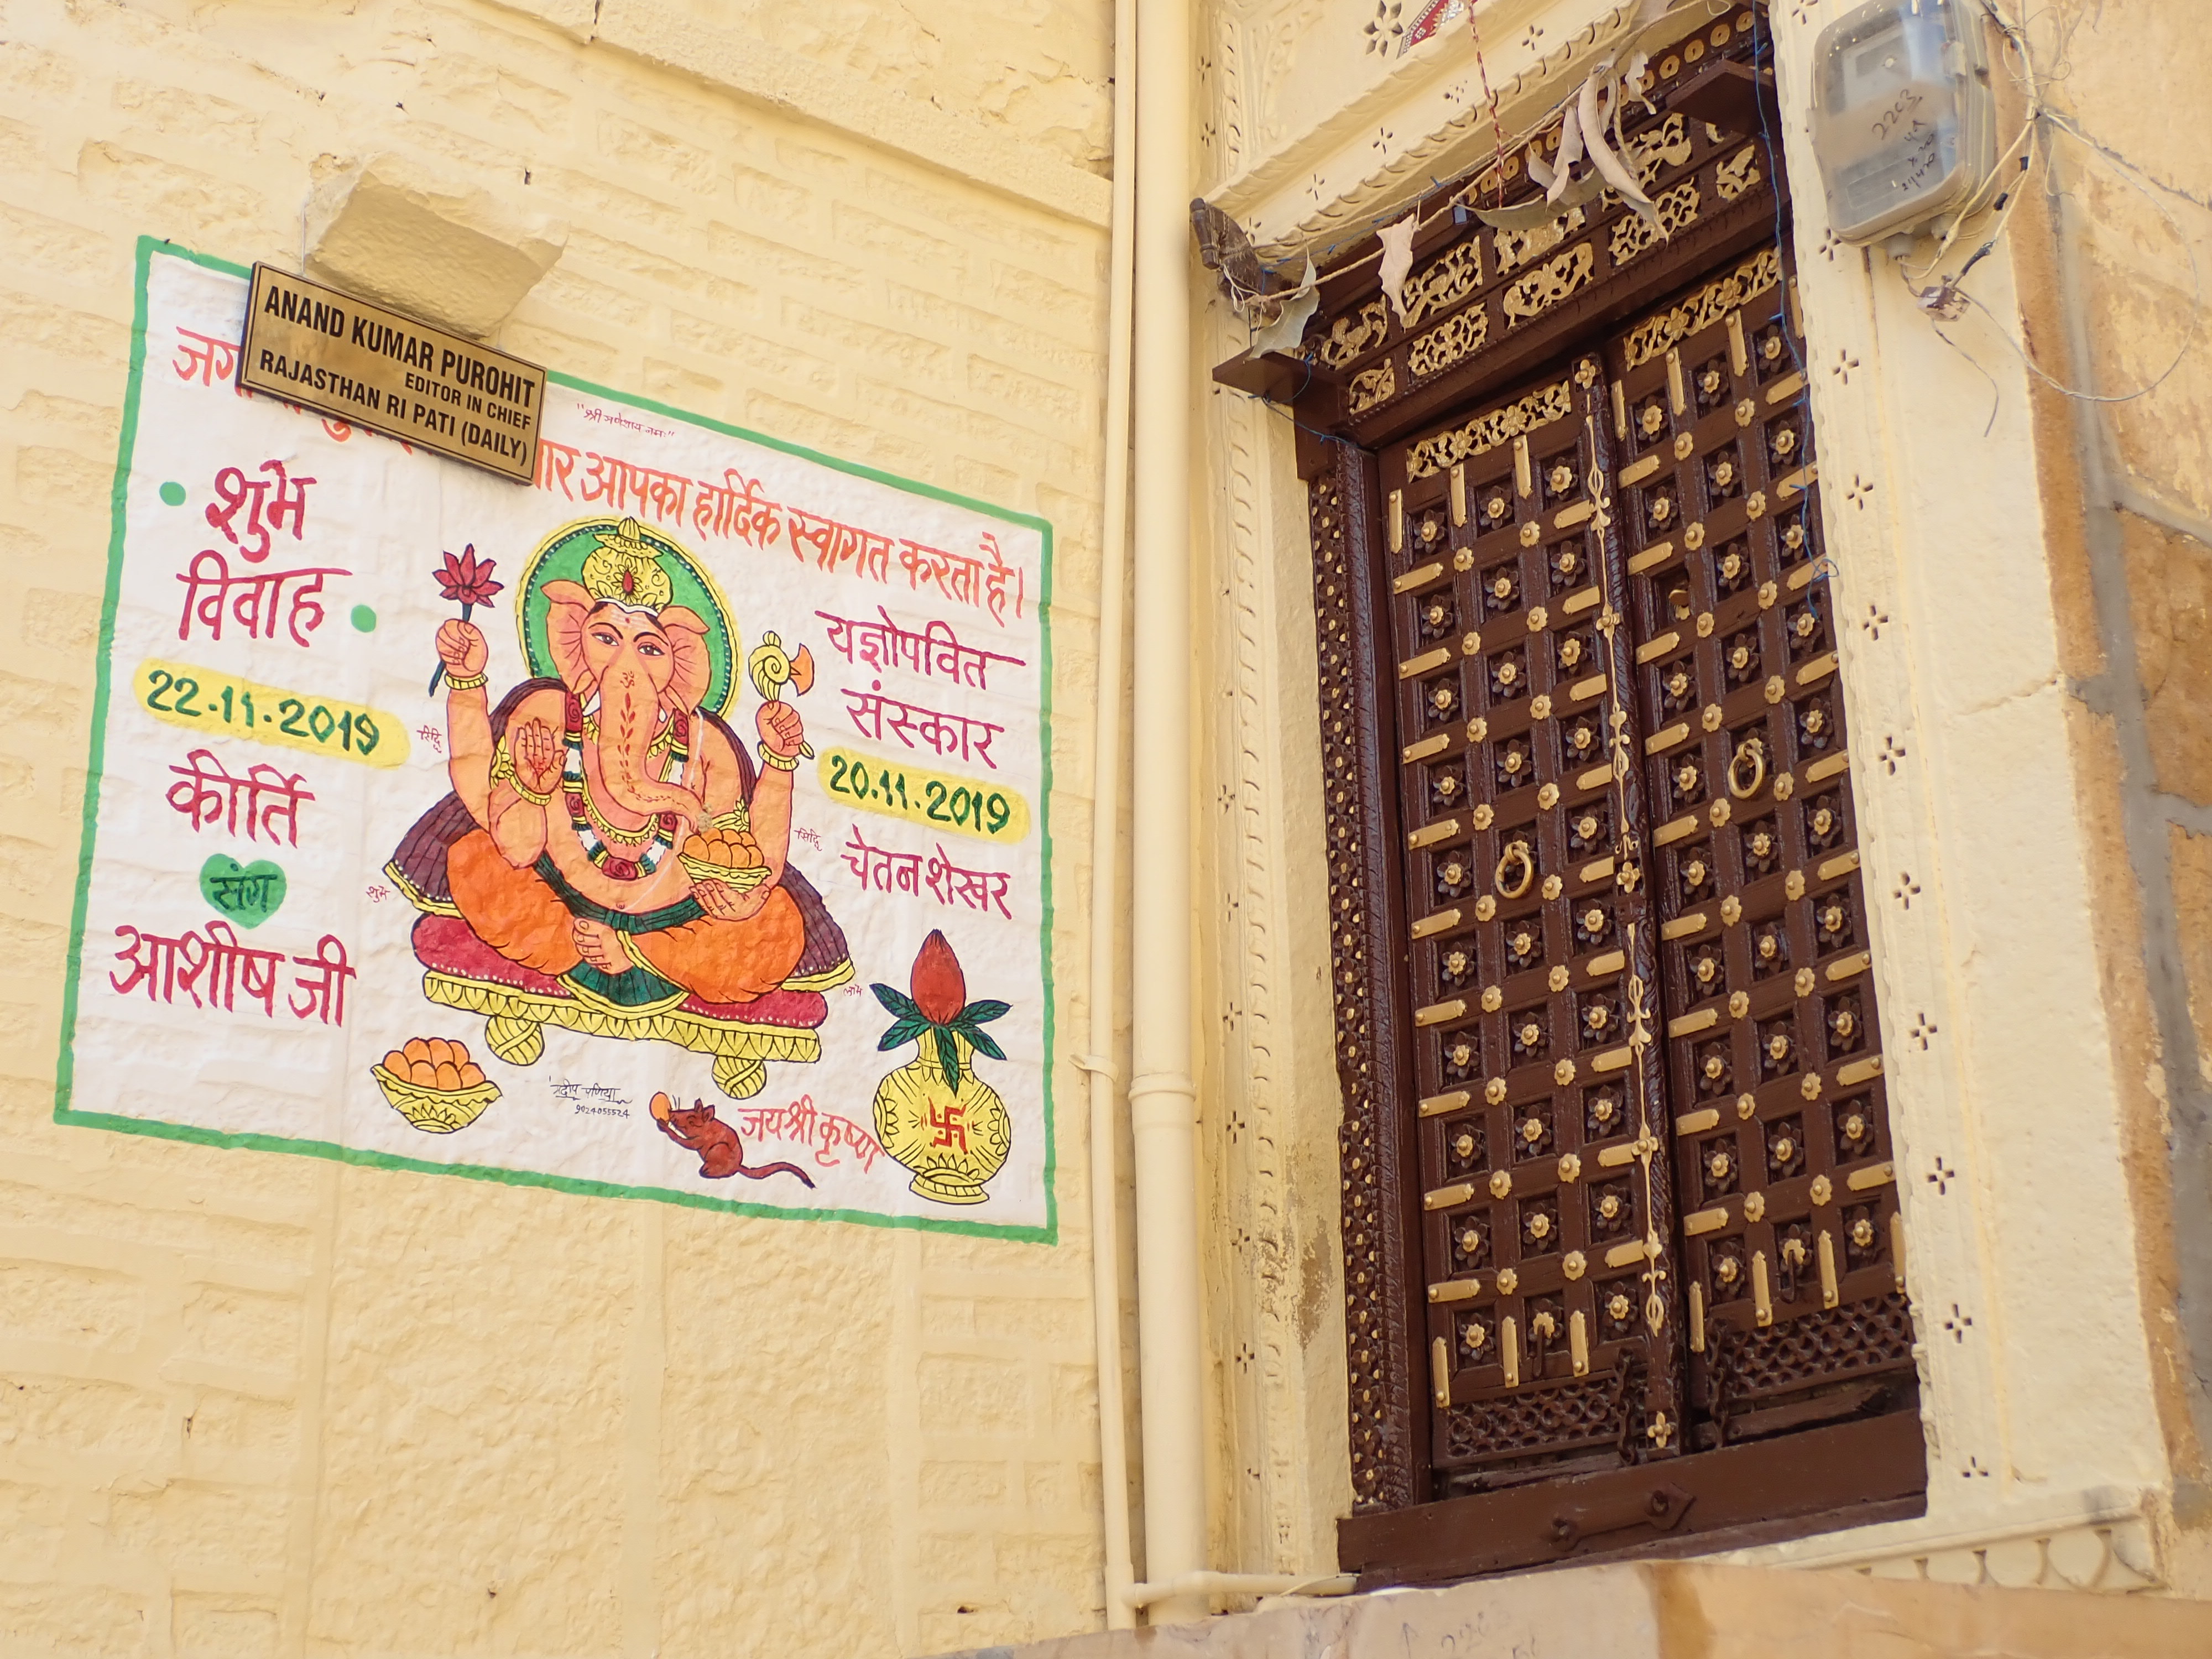 ANAND KUMAR PUROHIT
EDITOR IN CHIEF
RAJASTHAN RI PATI (DAILY)
"श्री गणेशाय नमः"
आपका हार्दिक स्वागत करता है।
शुभ
विवाह
22.11.2019
कीर्ति
संग
आशीष जी
यज्ञोपवित
संस्कार
20.11.2019
चेतन शेखर
रिद्धि
सिद्धि
शुभ
लाभ
9024055524
जय श्री कृष्णा
2203